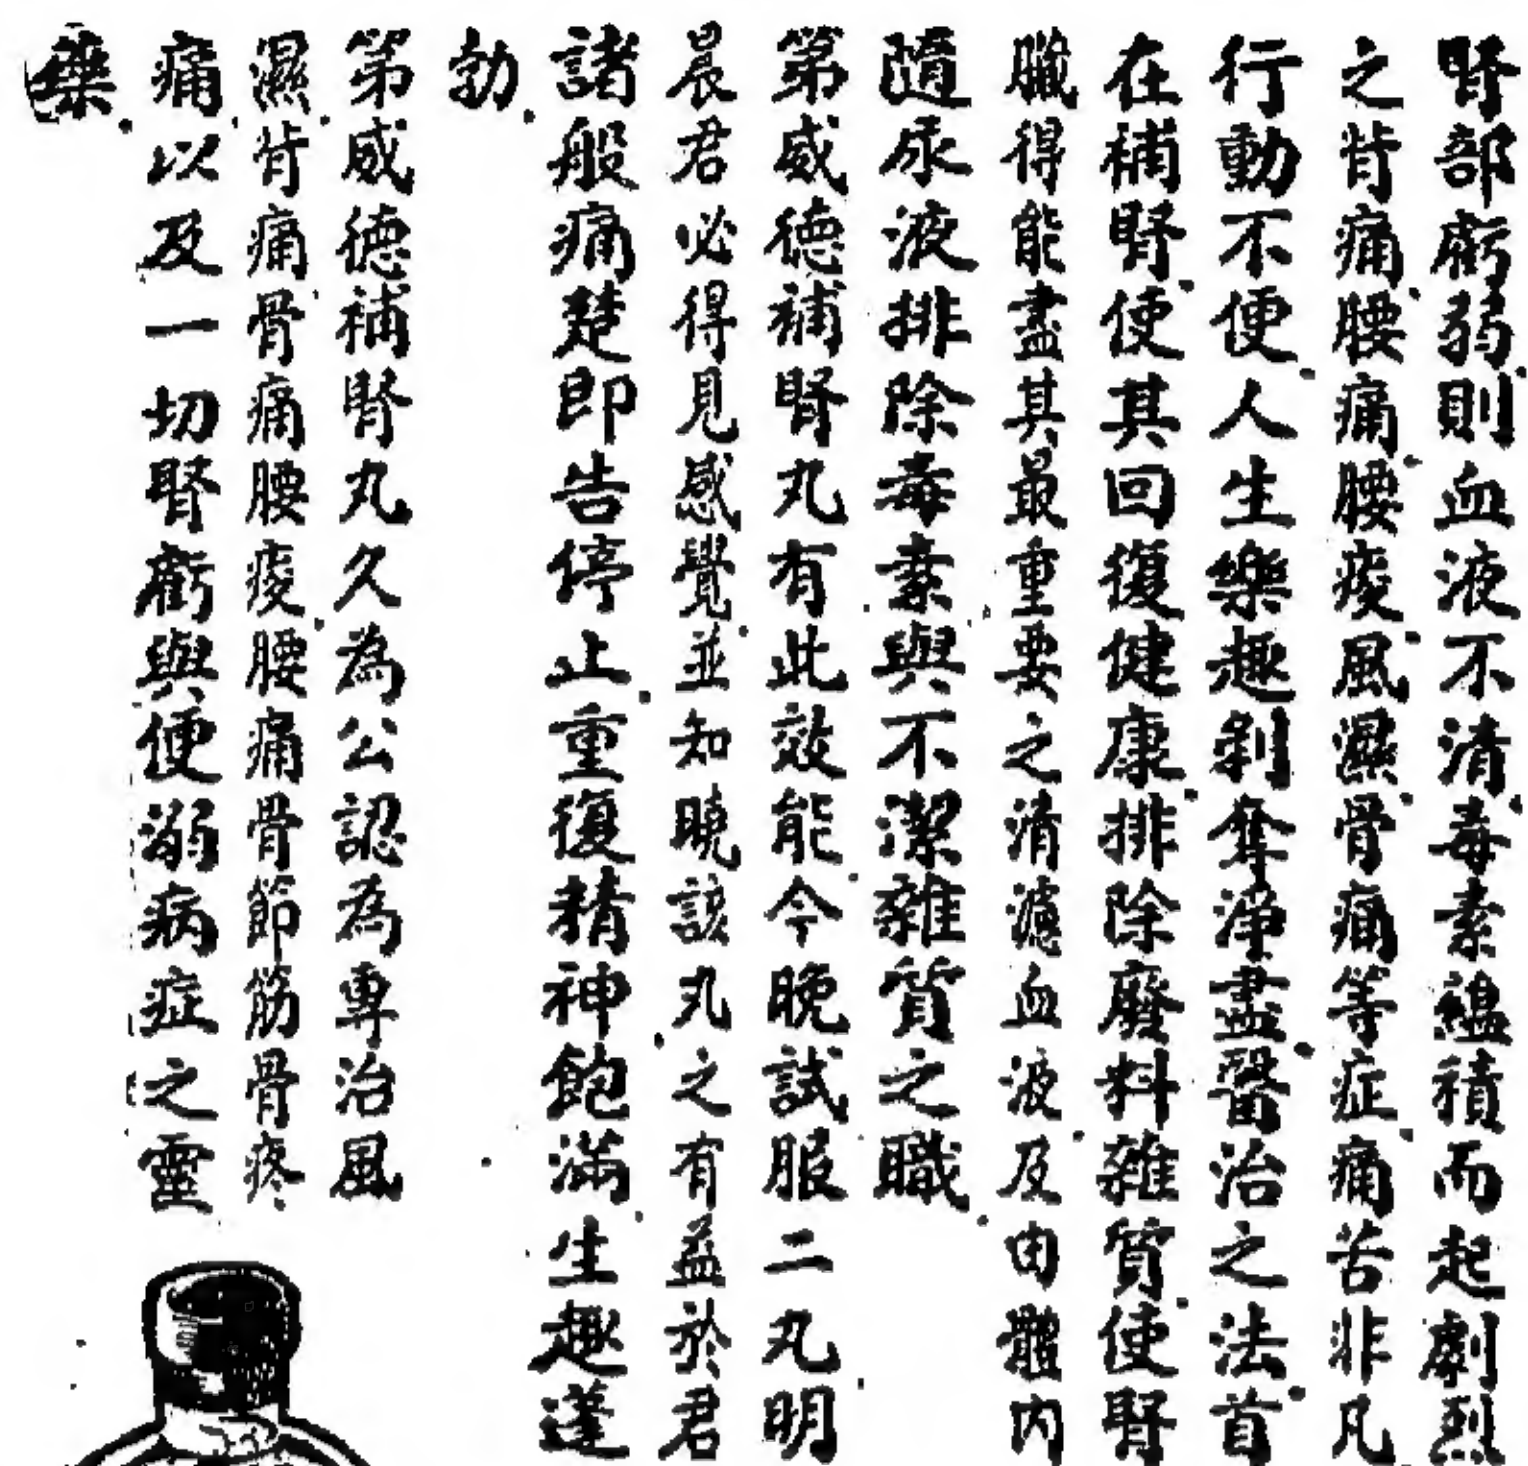 腎部虧弱則血液不清毒素蘊積而起劇烈
之背痛腰痛腰痠風濕骨痛等症痛苦非凡
行動不便人生樂趣剝奪淨盡醫治之法首
在補腎使其回復健康排除廢料雜質使腎
職得能盡其最重要之清濾血液及由體內
隨尿液排除毒素與不潔雜質之職
第威德補腎丸有此效能今晚試服二丸明
晨君必得見感覺並知曉該丸之有益於君
諸般痛楚即告停止重復精神飽滿生趣蓬
勃
第威德補腎丸久為公認為專治風
濕背痛骨痛腰痠腰痛骨節筋骨疼
痛以及一切腎虧與便溺病症之靈
藥